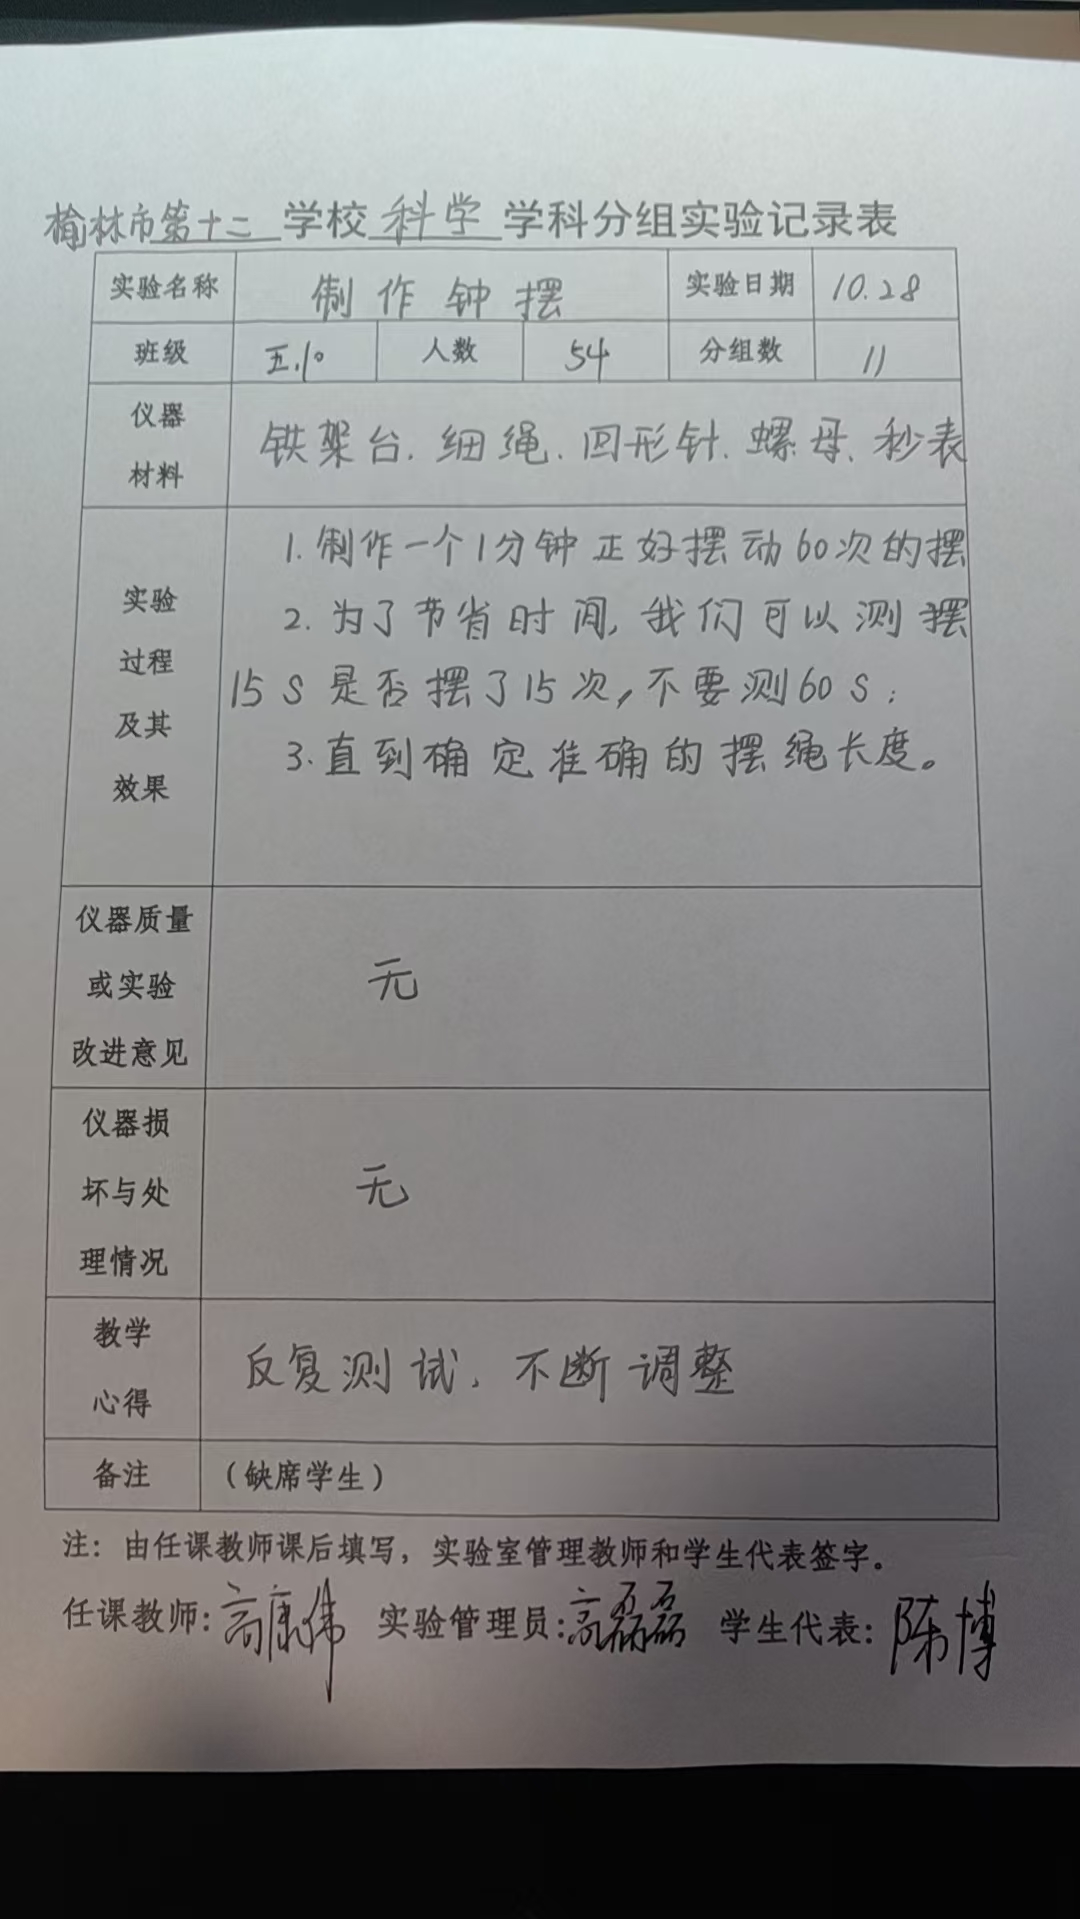 榆林市第十二学校科学学科分组实验记录表
实验名称 制作钟摆 实验日期 10.28
班级 五.10 人数 54 分组数 11
仪器
材料
铁架台.细绳.回形针.螺母、秒表
实验
过程
及其
效果
1.制作一个1分钟正好摆动60次的摆
2.为了节省时间,我们可以测摆
15S是否摆了15次,不要测60S;
3.直到确定准确的摆绳长度。
仪器质量
或实验
改进意见
无
仪器损
坏与处
理情况
无
教学
心得
反复测试、不断调整
备注 (缺席学生)
注:由任课教师课后填写,实验室管理教师和学生代表签字。
任课教师:高康伟 实验管理员:高磊磊 学生代表:陈博